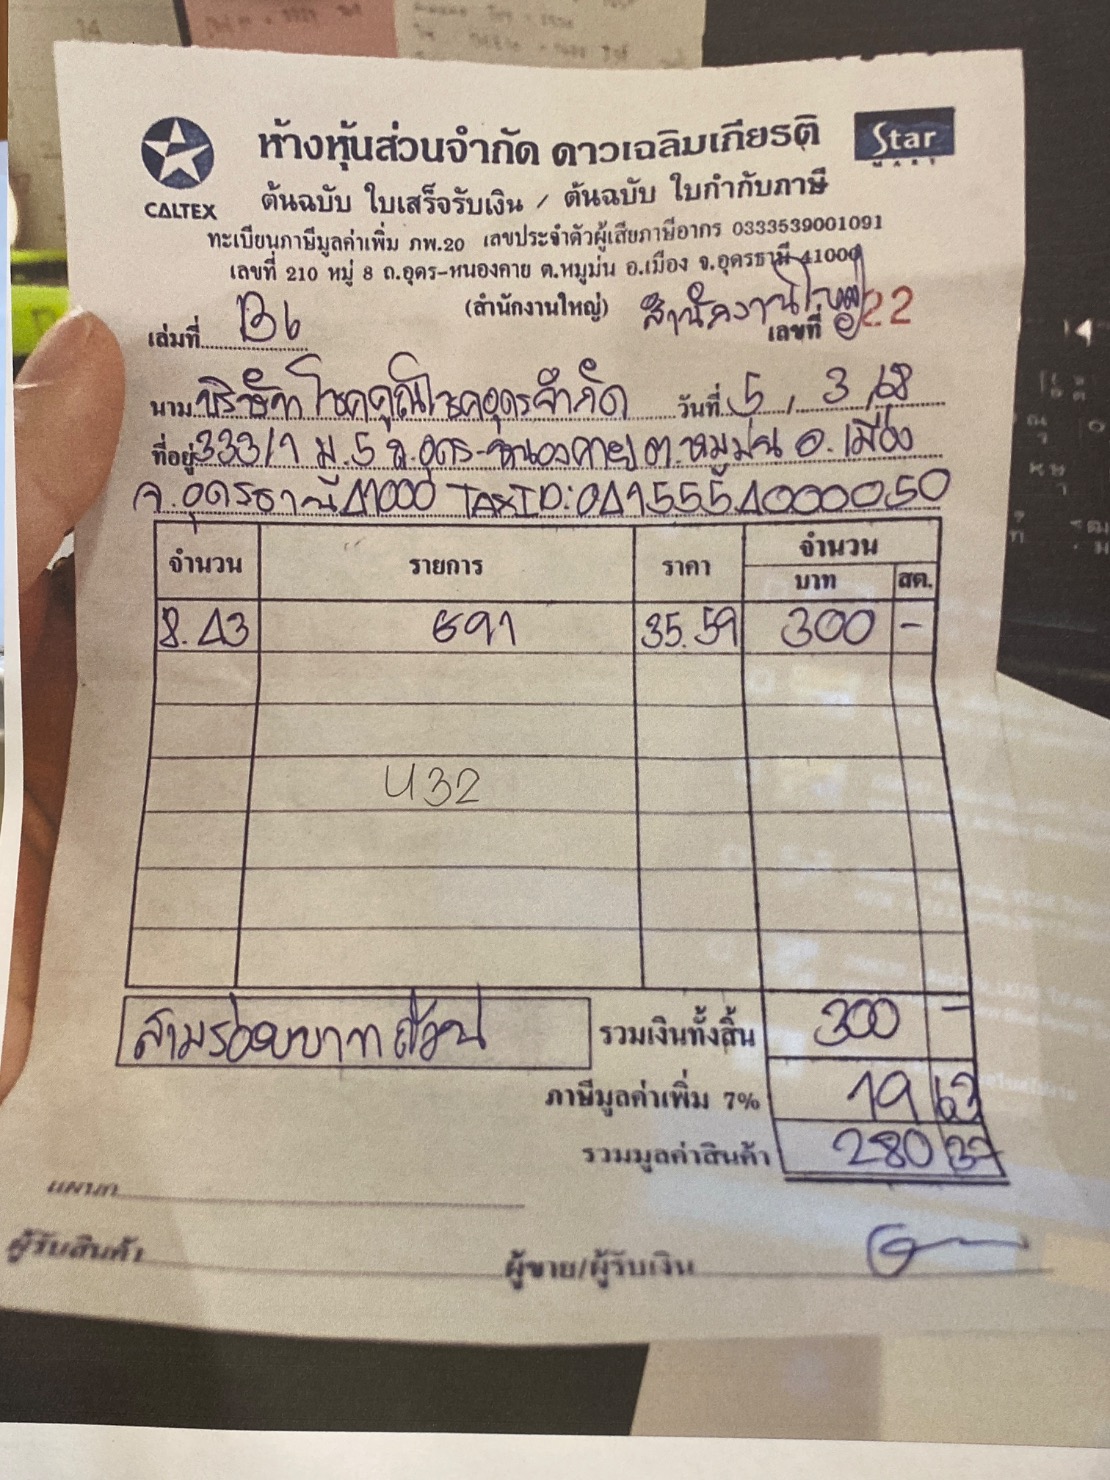 CALTEX
ห้างหุ้นส่วนจำกัด ดาวเฉลิมเกียรติ
Star MART
ต้นฉบับ ใบเสร็จรับเงิน / ต้นฉบับ ใบกำกับภาษี
ทะเบียนภาษีมูลค่าเพิ่ม ภพ.20 เลขประจำตัวผู้เสียภาษีอากร 0333539001091
เลขที่ 210 หมู่ 8 ถ.อุดร-หนองคาย ต.หมูม่น อ.เมือง จ.อุดรธานี 41000
(สำนักงานใหญ่) สำนักงานใหญ่
เล่มที่ B6 เลขที่ 22
นาม บริษัท โชคคูณโชคอุดรจำกัด วันที่ 5 / 3 / 68
ที่อยู่ 333/1 ม.5 ถ.อุดร-หนองคาย ต.หมูม่น อ.เมือง
จ.อุดรธานี 41000 TAXID: 0415554000050
จำนวน รายการ ราคา จำนวน
บาท สต.
8.43 G91 35.59 300 -
U32
สามร้อยบาทถ้วน รวมเงินทั้งสิ้น 300 -
ภาษีมูลค่าเพิ่ม 7% 19 63
รวมมูลค่าสินค้า 280 37
แผนก
ผู้รับสินค้า ผู้ขาย/ผู้รับเงิน